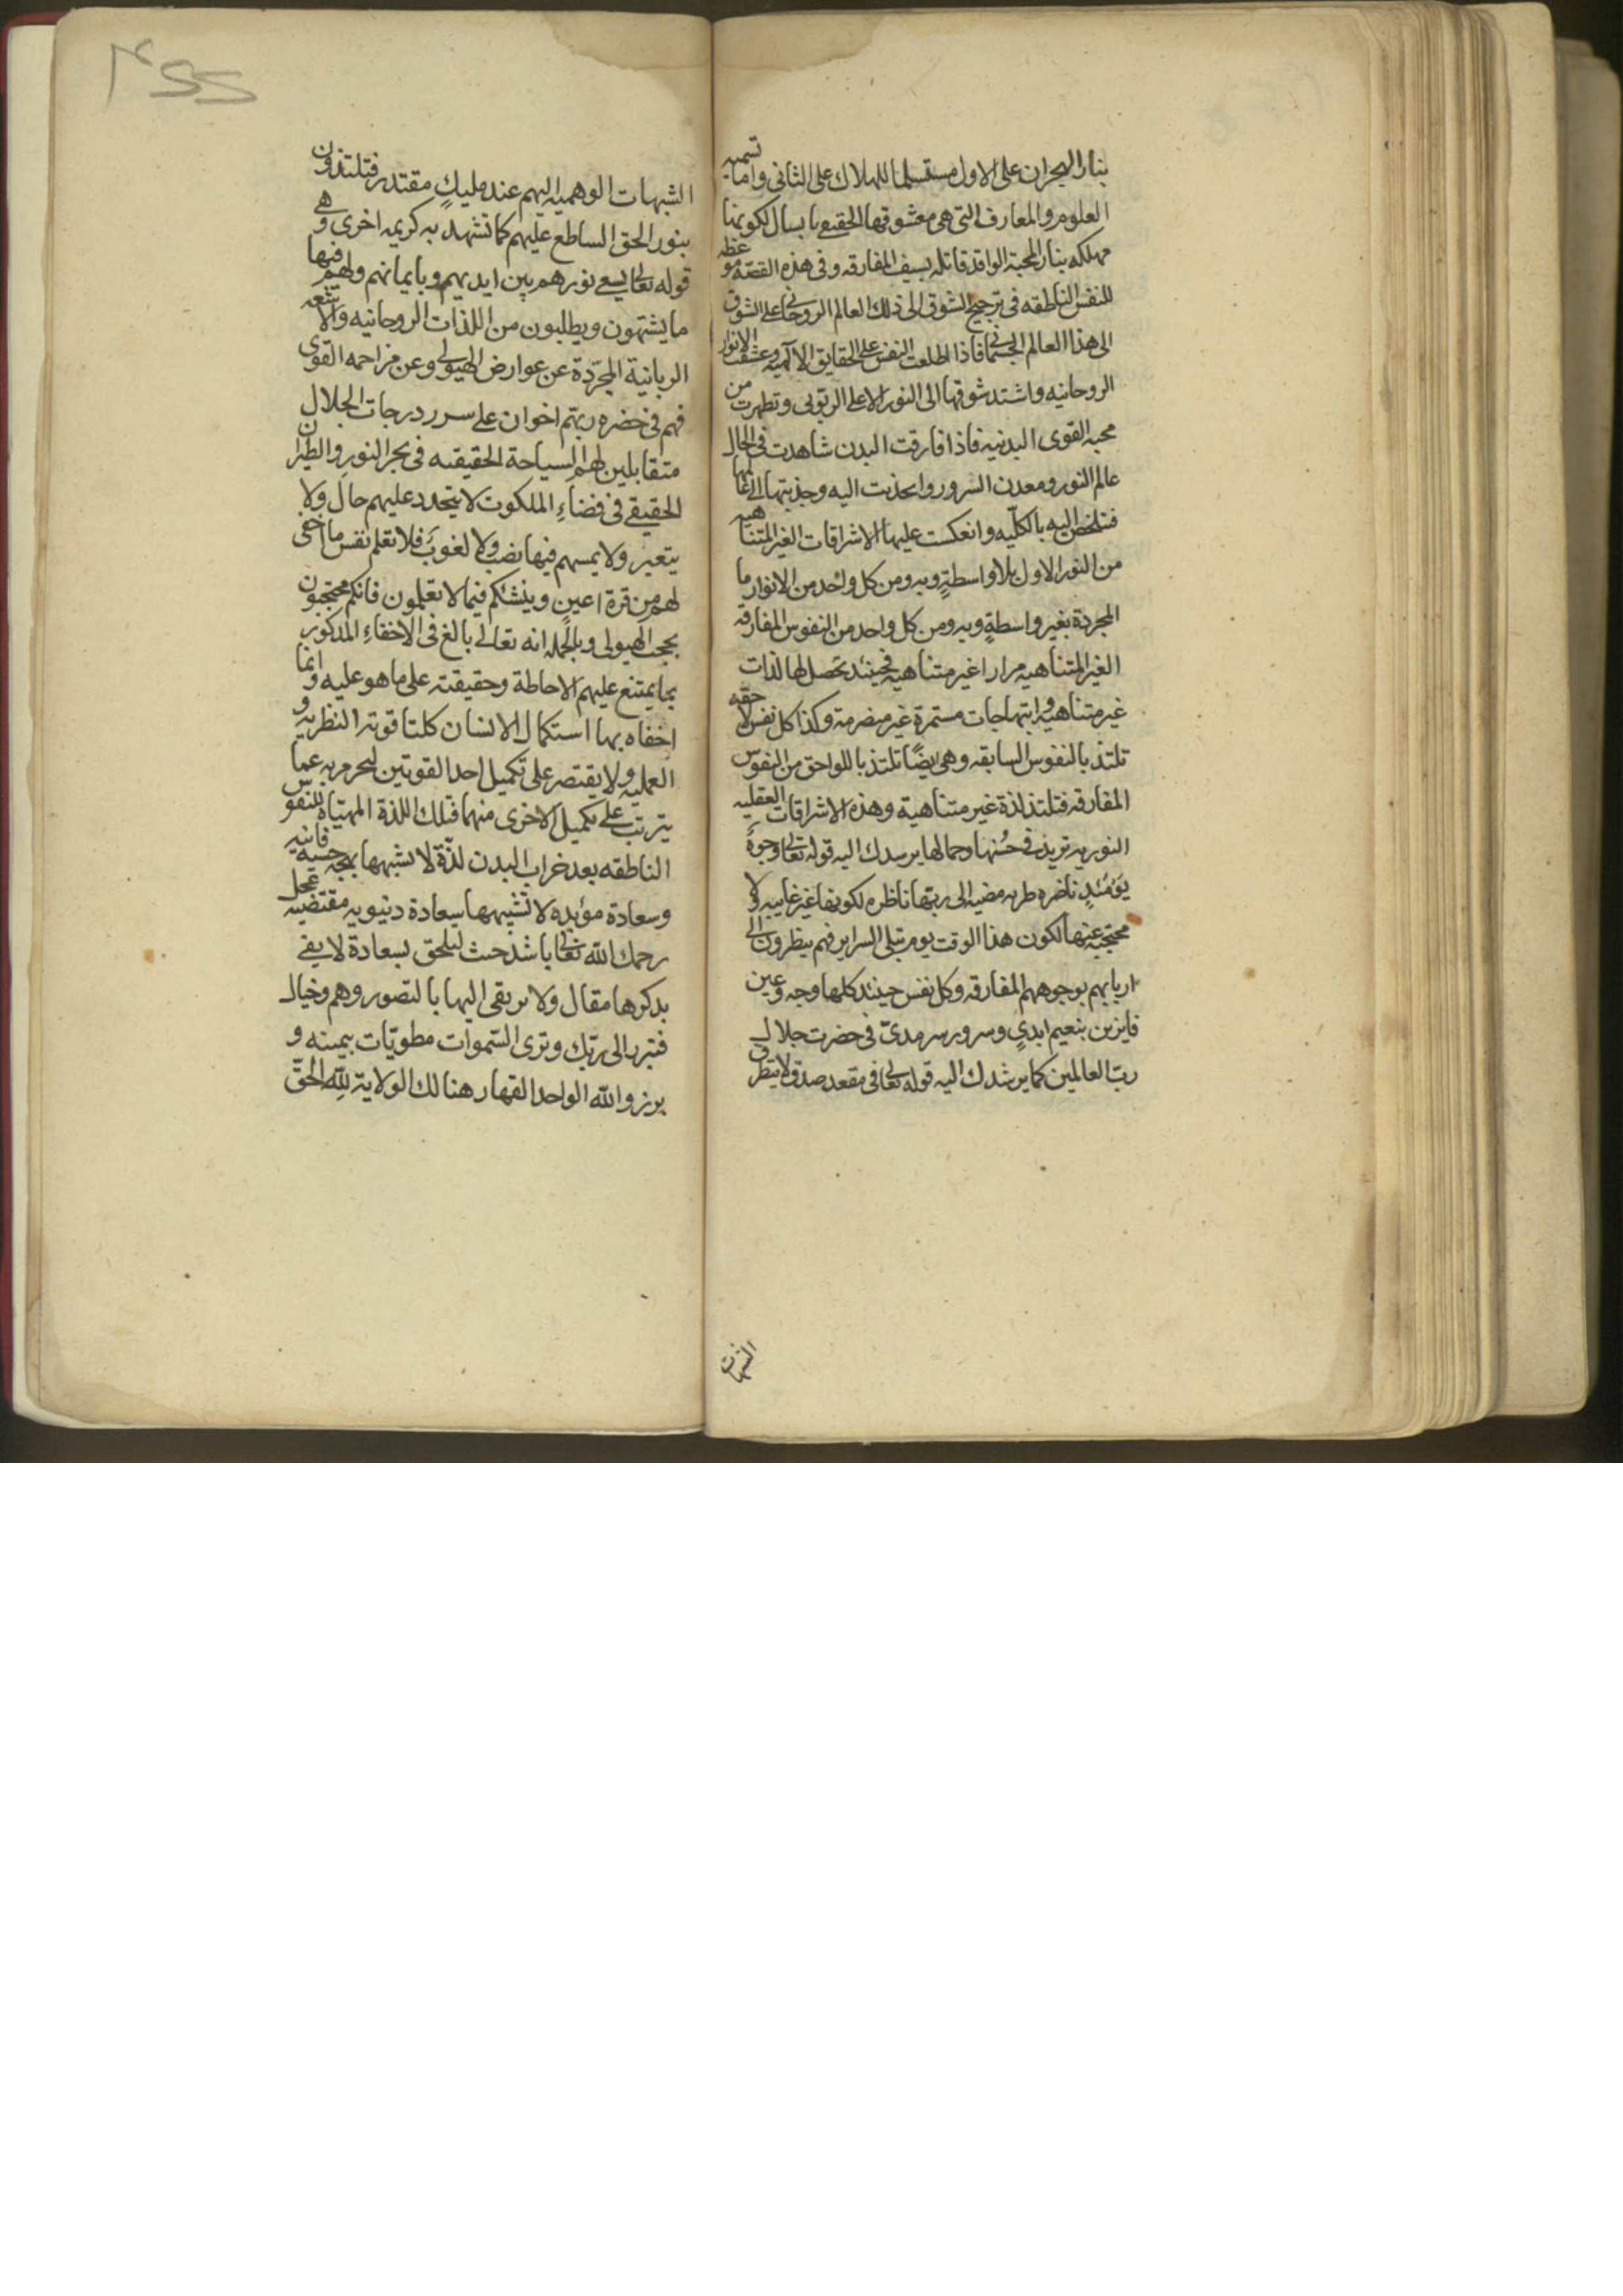 بنار الهجران على الاول مستسلما للهلاك على الثانى واما تسميه
العلوم والمعارف التى هى معشوقها الحقيقى بابسال لكونها
مهلكه بنار المحبة الواقد قاتله بسيف المفارقه وفى هذه القصّة موعظه
للنفس الناطقه فى ترجيح الشوق الى ذلك العالم الروحانى على الشوق
الى هذا العالم الجسمانى فاذا اطلعت النفس على الحقايق الالهيه وعشقت الانوار
الروحانيه واشتد شوقها الى النور الاعلى الربوبى وتطهرت من
محبه القوى البدنيه فاذا فارقت البدن شاهدت فى الحال
عالم النور ومعدن السرور وانجذبت اليه وجذبتها الى عالمها
فتلخص اليه بالكلّيه وانعكست عليها الاشراقات الغير المتناهيه
من النور الاول بلا واسطةٍ وبه ومن كل واحد من الانوار ما
المجردة بغير واسطةٍ وبه ومن كل واحد من النفوس المفارقه
الغير المتناهيه مرارا غير متناهيه فحينئد تحصل لها لذات
غير متناهيه وابتهاجات مستمرة غير منصرمة وكذا كل نفس لاحقه
تلتذ بالنفوس السابقه وهى ايضًا تلتذ باللواحق من النفوس
المفارقه فتلتذ لذة غير متناهية وهذه الاشراقات العقليه
النوريه تزيد فى حُسنها وجمالها يرسدك اليه قوله تعالى وجوهٌ
يَوْمَئِدٍ ناضره طريه مضيه الى ربها ناظره لكونها غير غايبه ولا
محتجبه عنها لكون هذا الوقت يوم تبلى السراير فهم ينظرون الى
اربابهم بوجوههم المفارقه وكل نفس حينئد كلها وجه وعين
فايزين بنعيم ابدىٍ وسرور سرمدىّ فى حضرت جلال
ربّ العالمين كما يرشدك اليه قوله تعالى فى مقعد صدق لا يتطرق
الشبهات
الشبهات الوهميه اليهم عند مليكٍ مقتدر فتلتذون
بنور الحق الساطع عليهم كما تشهد به كريمه اخرى وهى
قوله تعالى يسعى نورهم بين ايديهم وبايمانهم ولهم فيها
ما يشتهون ويطلبون من اللذات الروحانيه والاشعه
الربانية المجرّدة عن عوارض الهيولى وعن مزاحمه القوى
فهم فى حضره ربهم اخوان على سرر درجات الجلال
متقابلين لهم السياحة الحقيقيه فى بحر النور والطيران
الحقيقى فى فضاءِ الملكوت لا يتجدد عليهم حال ولا
يتغير ولا يمسهم فيها نصب ولا لغوب فلا تعلم نفس ما اخفى
لهم من قرة اعين وينشئكم فيما لا تعلمون فانكم محتجبون
بحجب الهيولى وبالجمله انه تعالى بالغ فى الاخفاءِ المذكور
بما يمتنع عليهم الاحاطة وحقيقته على ما هو عليه وانما
اخفاه بها استكمال الانسان كلتا قوته النظريه و
العمليه ولا يقتصر على تكميل احدا القوتين لتحرم به عما
يترتب على تكميل الاخرى منهما فتلك اللذة المهيّاة للنفوس
الناطقه بعد خراب البدن لذّة لا تشبهها بهجه حسيه فانيه
وسعادة مؤبده لا تشبهها سعادة دنيويه مقتضيه عجل
رحمك الله تعالى باشد حث لتلحق بسعادة لا يفى
بدكرها مقال ولا يرتقى اليها بالتصور وهم وخيال
فتبرر الى ربّك وترى السّموات مطويّات بيمينه و
برزوا لله الواحد القهار هنالك الولاية لِلّٰهِ الحَقّ